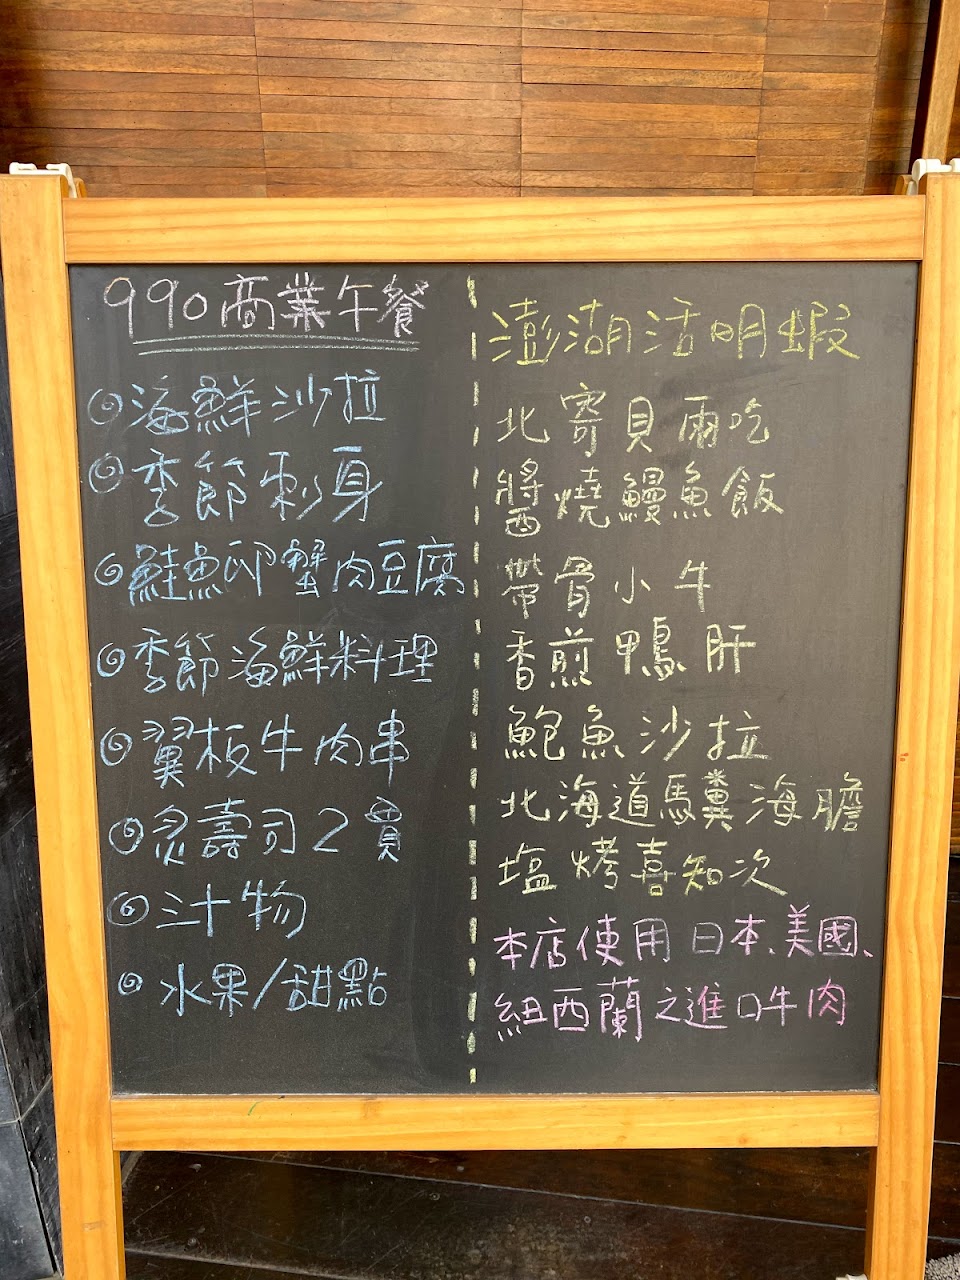 990商業午餐
海鮮沙拉
季節刺身
鮭魚卵蟹肉豆腐
季節海鮮料理
翼板牛肉串
炙壽司2貫
汁物
水果/甜點
澎湖活明蝦
北寄貝兩吃
醬燒鰻魚飯
帶骨小牛
香煎鴨肝
鮑魚沙拉
北海道馬糞海膽
塩烤喜知次
本店使用日本、美國、
紐西蘭之進口牛肉